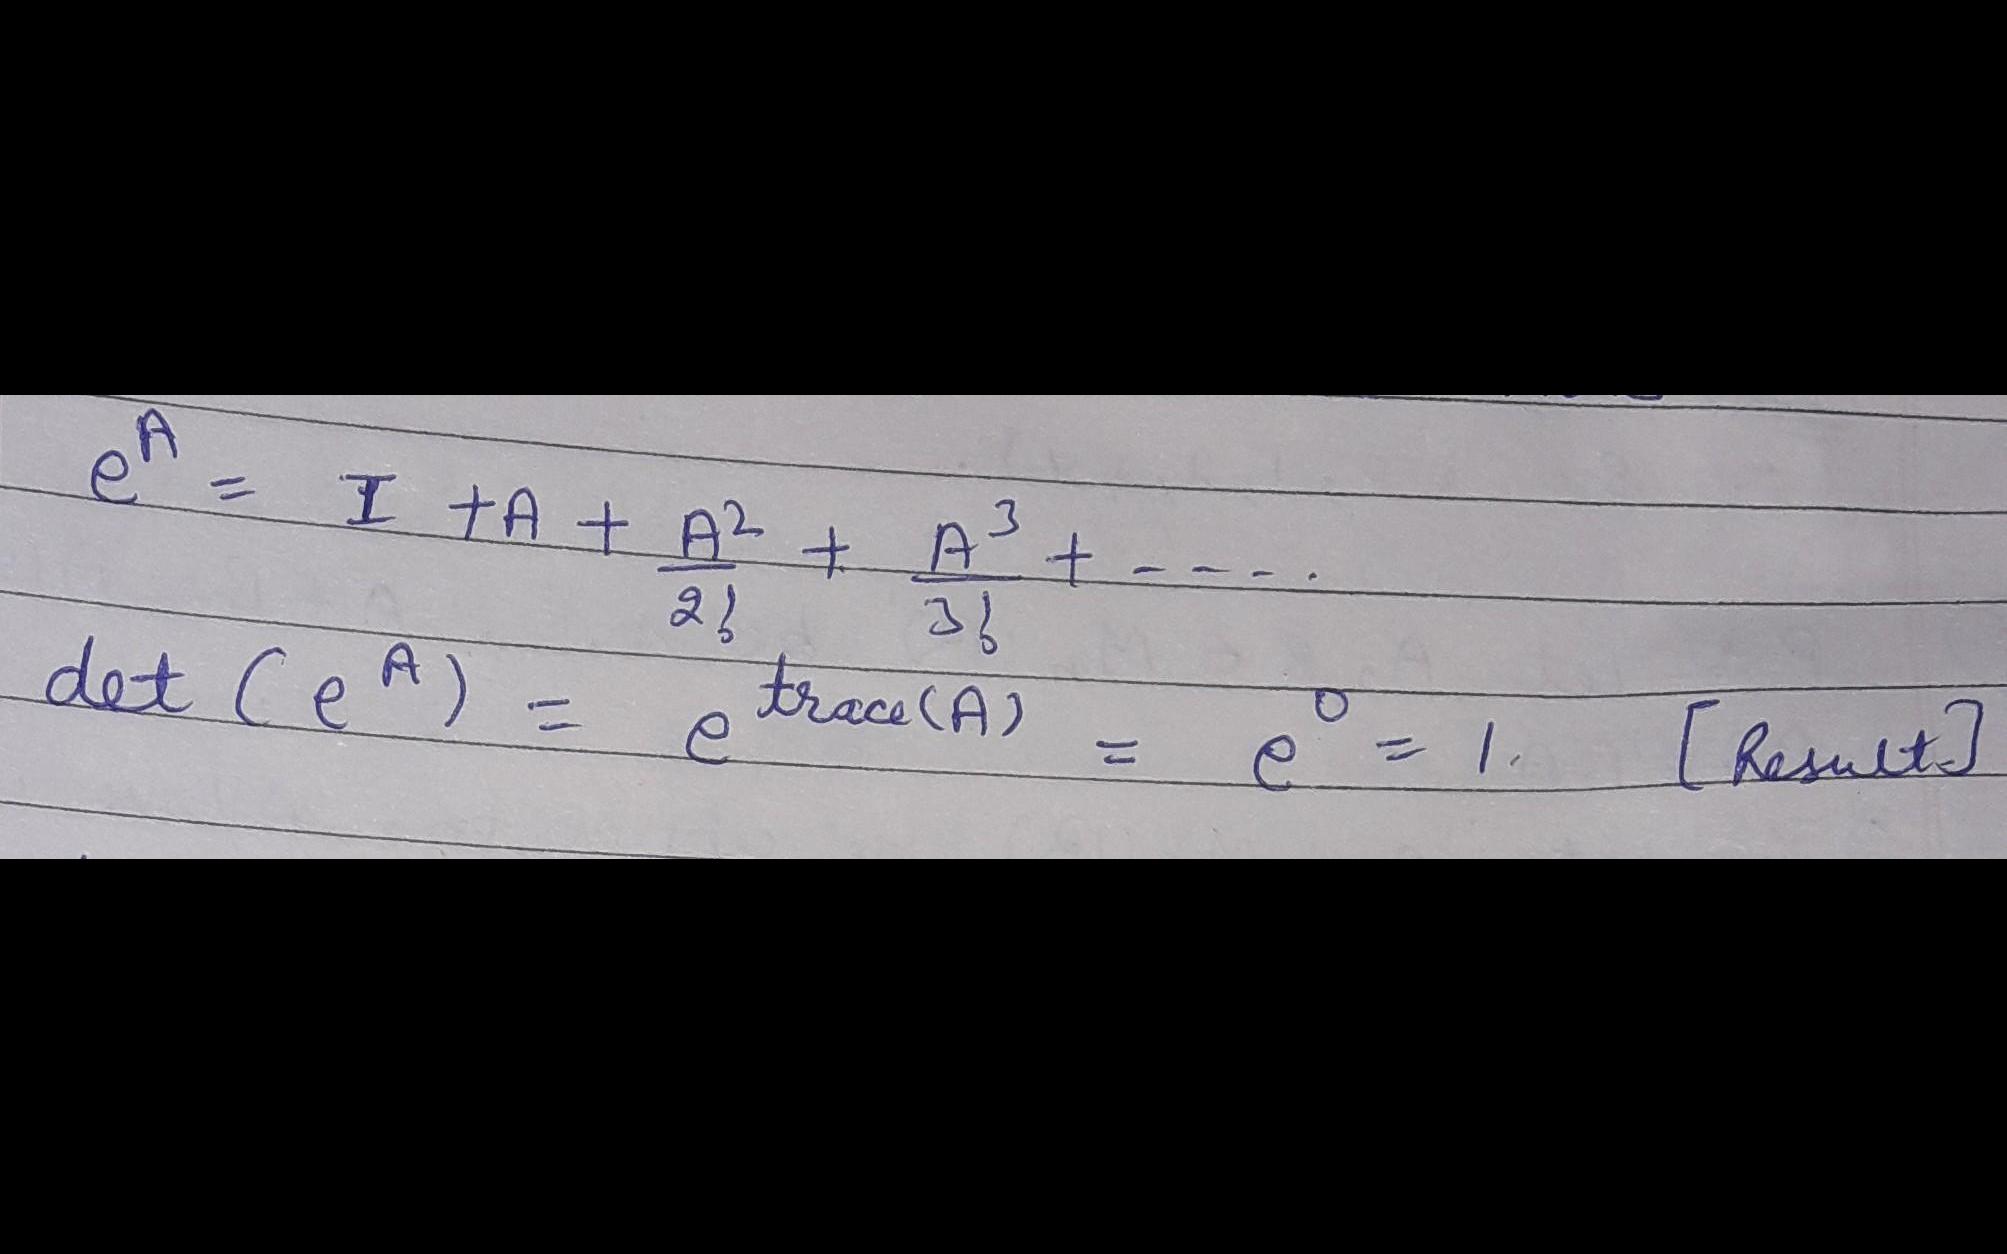 e^A = I + A + A^2/2! + A^3/3! + - - - - .
det (e^A) = e^trace(A) = e^0 = 1. [Result]